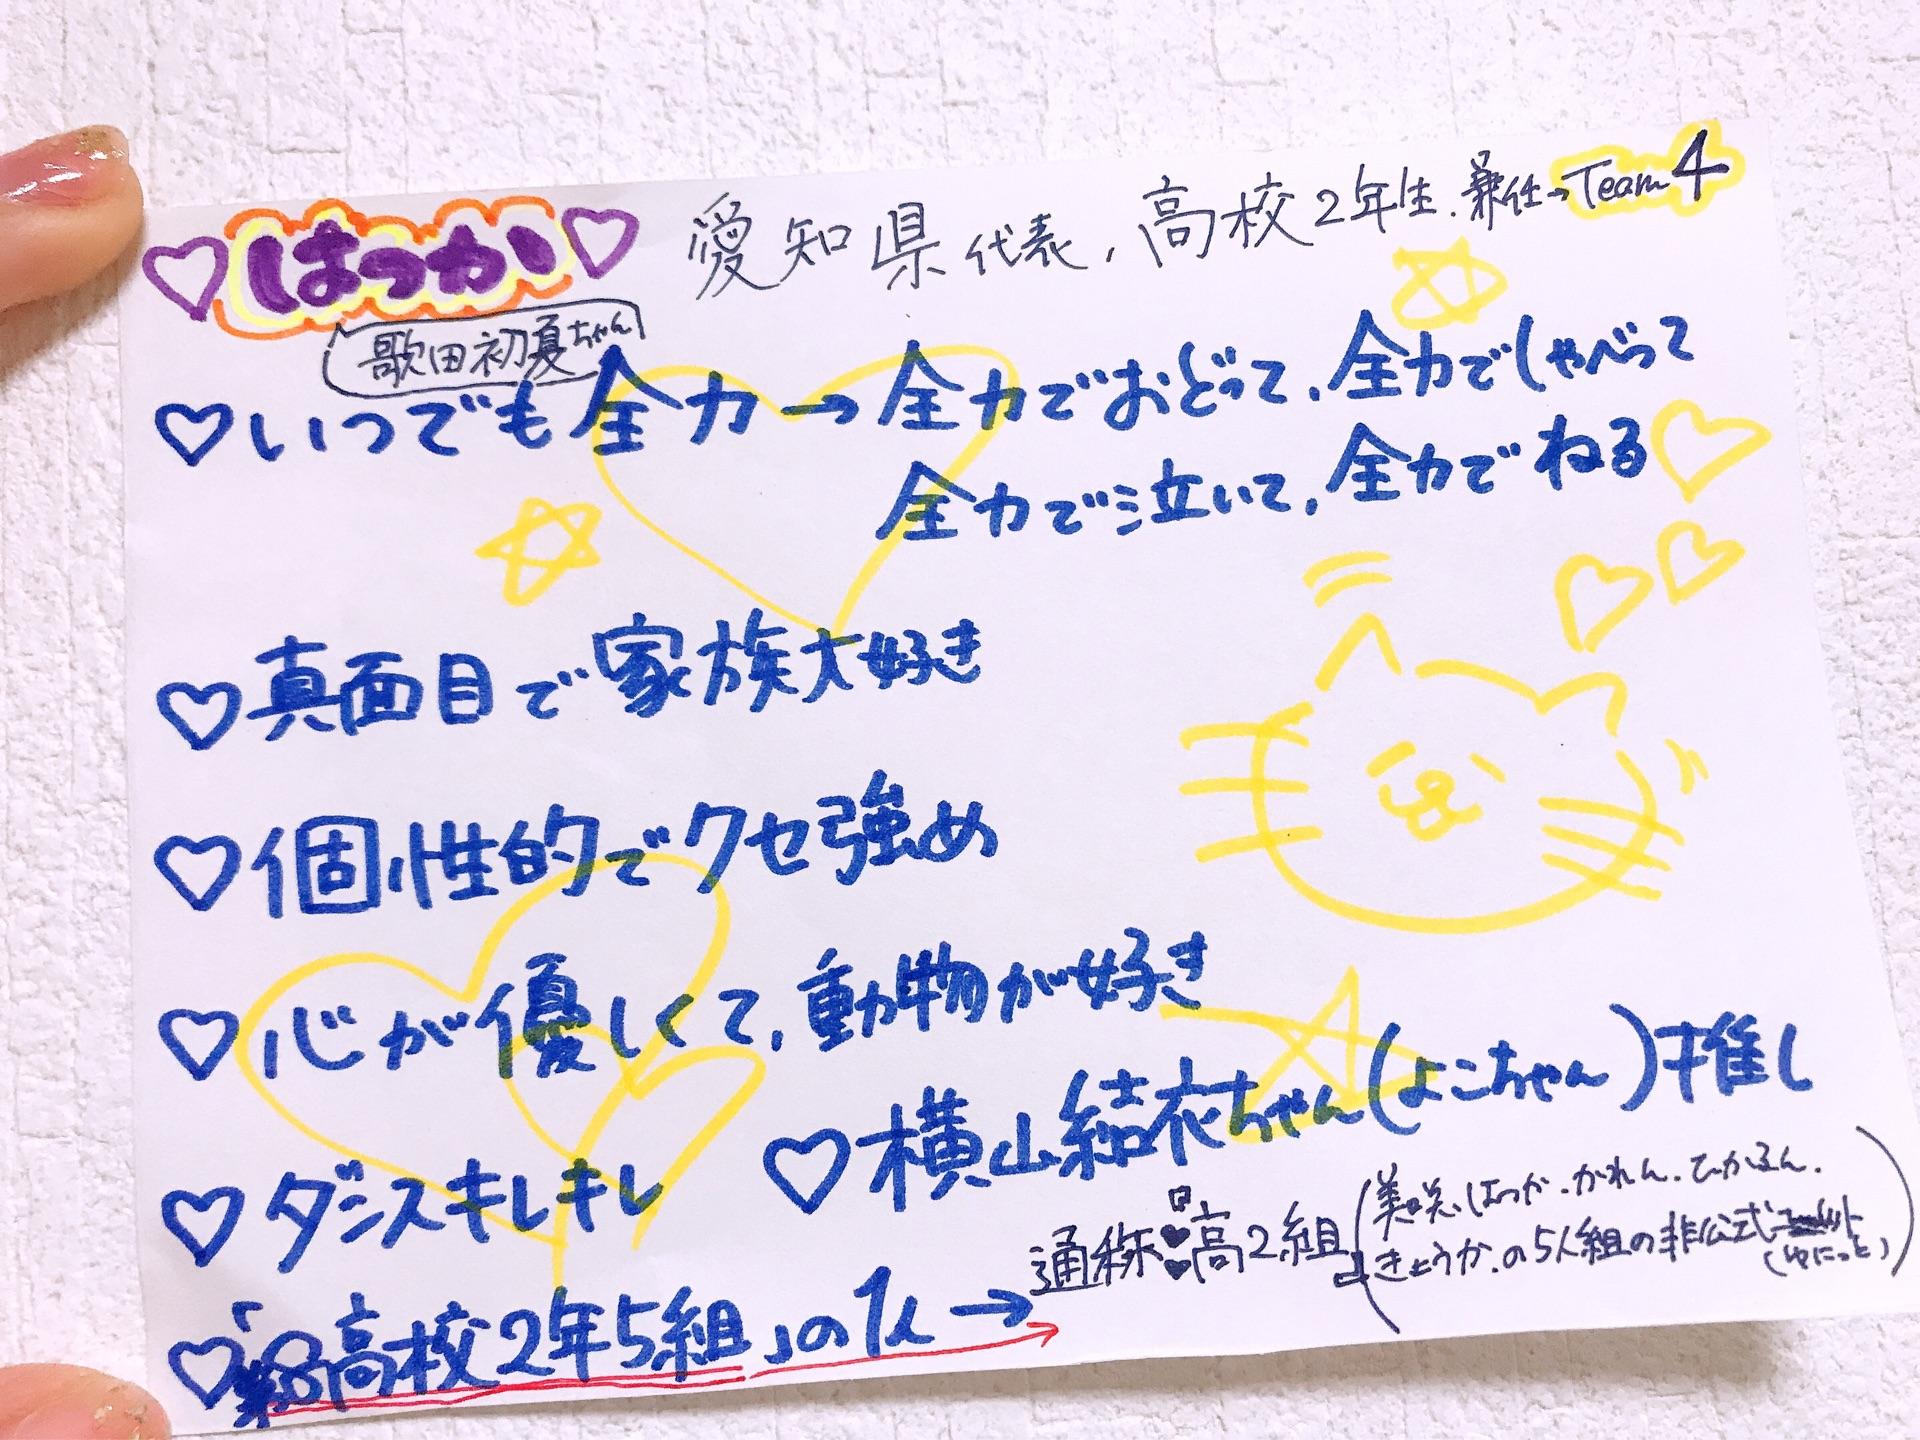 ♡はつか♡
愛知県代表、高校2年生. 兼任→Team4
歌田初夏ちゃん
♡いつでも全力→全力でおどって、全力でしゃべって
全力で泣いて、全力でねる
♡真面目で家族大好き
♡個性的でクセ強め
♡心が優しくて、動物が好き
♡横山結衣ちゃん(よこちゃん)推し
♡ダンスキレキレ
♡「高校2年5組」の1人→
通称:高2組
(美咲、はつか、かれん、ひかるん、
きょうか、の5人組の非公式
(ゆにっと))